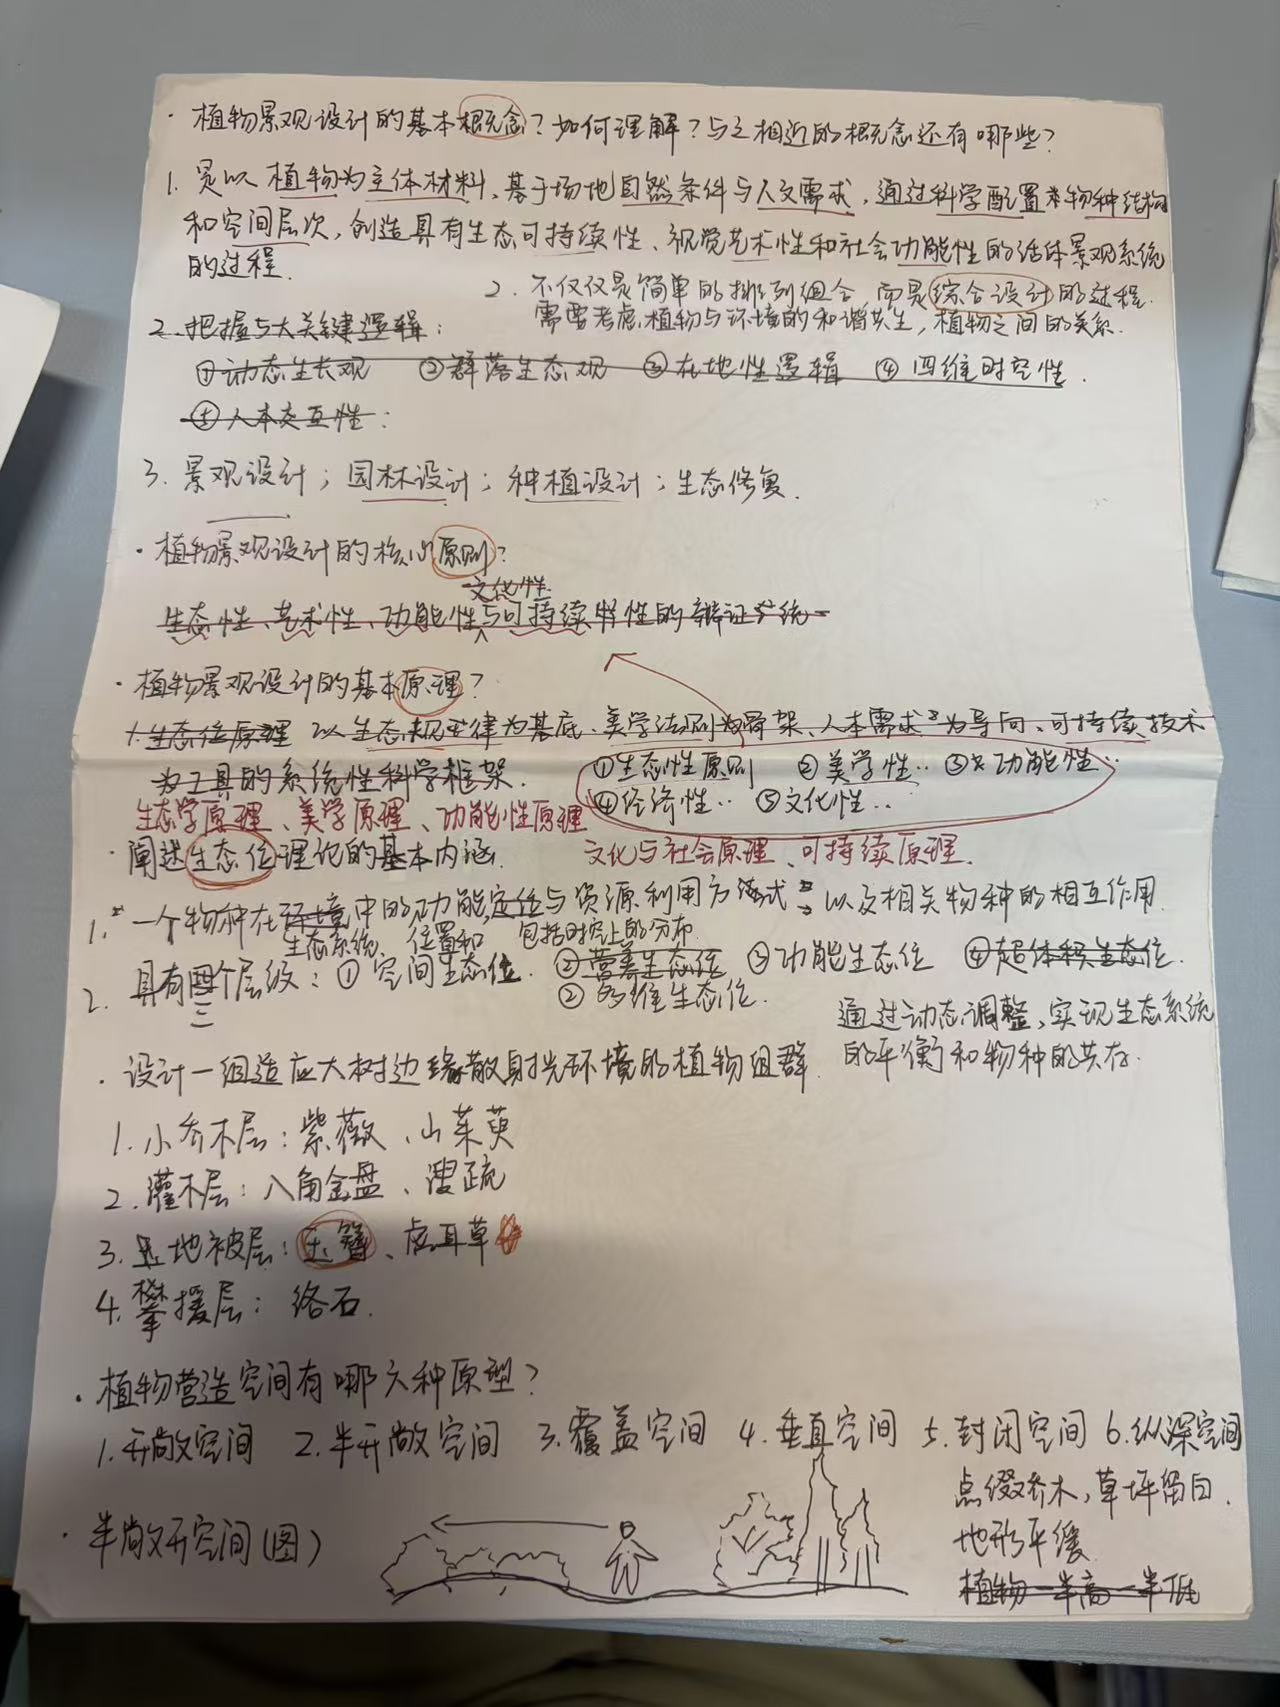 · 植物景观设计的基本概念？如何理解？与之相近的概念还有哪些？
1. 是以植物为主体材料、基于场地自然条件与人文需求，通过科学配置物种结构
和空间层次，创造具有生态可持续性、视觉艺术性和社会功能性的活体景观系统
的过程.
2. 不仅仅是简单的排列组合 而是综合设计的过程.
需要考虑植物与环境的和谐共生，植物之间的关系.
2. 把握五大关键逻辑：
①动态生长观 ②群落生态观 ③在地性逻辑 ④四维时空性.
⑤人本交互性：
3. 景观设计；园林设计；种植设计；生态修复.
· 植物景观设计的核心原则？
文化性
生态性、艺术性、功能性与可持续性的辩证统一
· 植物景观设计的基本原理？
1. 生态位原理 以生态规律为基底、美学法则为骨架、人本需求为导向、可持续技术
为工具的系统性科学框架.
①生态性原则 ②美学性‥ ③功能性‥
④经济性‥ ⑤文化性‥
生态学原理、美学原理、功能性原理
文化与社会原理、可持续原理.
· 阐述生态位理论的基本内涵.
1. 一个物种在环境中的功能定位与资源利用方式 以及相关物种的相互作用.
生态系统 位置和 包括时空上的分布
2. 具有四个层级：①空间生态位 ②营养生态位 ③功能生态位 ④超体积生态位.
三 ②多维生态位.
通过动态调整、实现生态系统
的平衡和物种的共存.
· 设计一组适应大树边缘散射光环境的植物组群.
1. 小乔木层：紫薇、山茱萸
2. 灌木层：八角金盘、溲疏
3. 地被层：玉簪、虎耳草
4. 攀援层：络石.
· 植物营造空间有哪六种原型？
1. 开敞空间 2. 半开敞空间 3. 覆盖空间 4. 垂直空间 5. 封闭空间 6. 纵深空间
· 半敞开空间（图）
点缀乔木，草坪留白.
地形平缓
植物一半高一半低